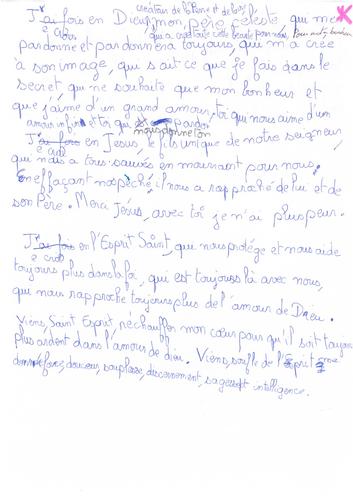 créateur de la Terre et du ciel
J'ai fois en Dieu, mon père céleste qui me
e crois qui a créé toute cette beauté pour nous, Pour notre bonheur
pardonne et pardonnera toujours, qui m'a créé
à son image, qui sait ce que je fais dans le
secret, qui ne souhaite que mon bonheur et
que j'aime d'un grand amour, toi qui nous aime d'un
amour infini et toi qui pardon
nous donne ton
J'ai fois en Jésus, le fils unique de notre seigneur,
e crois
qui nous a tous sauvés en mourrant pour nous.
En effaçant nos péchés, il nous a rapproché de lui et de
son Père. Merci Jésus, avec toi je n'ai plus peur.
J'ai fois en l'Esprit Saint, que nous protège et nous aide
e crois
toujours plus dans la foi, qui est toujours là avec nous,
qui nous rapproche toujours plus de l'amour de Dieu.
Viens, Saint Esprit, réchauffer mon cœur pour qu'il soit toujours
plus ardent dans l'amour de dieu. Viens, souffle de l'Esprit
force, douceur, souplesse, discernement, sagesse et intelligence.